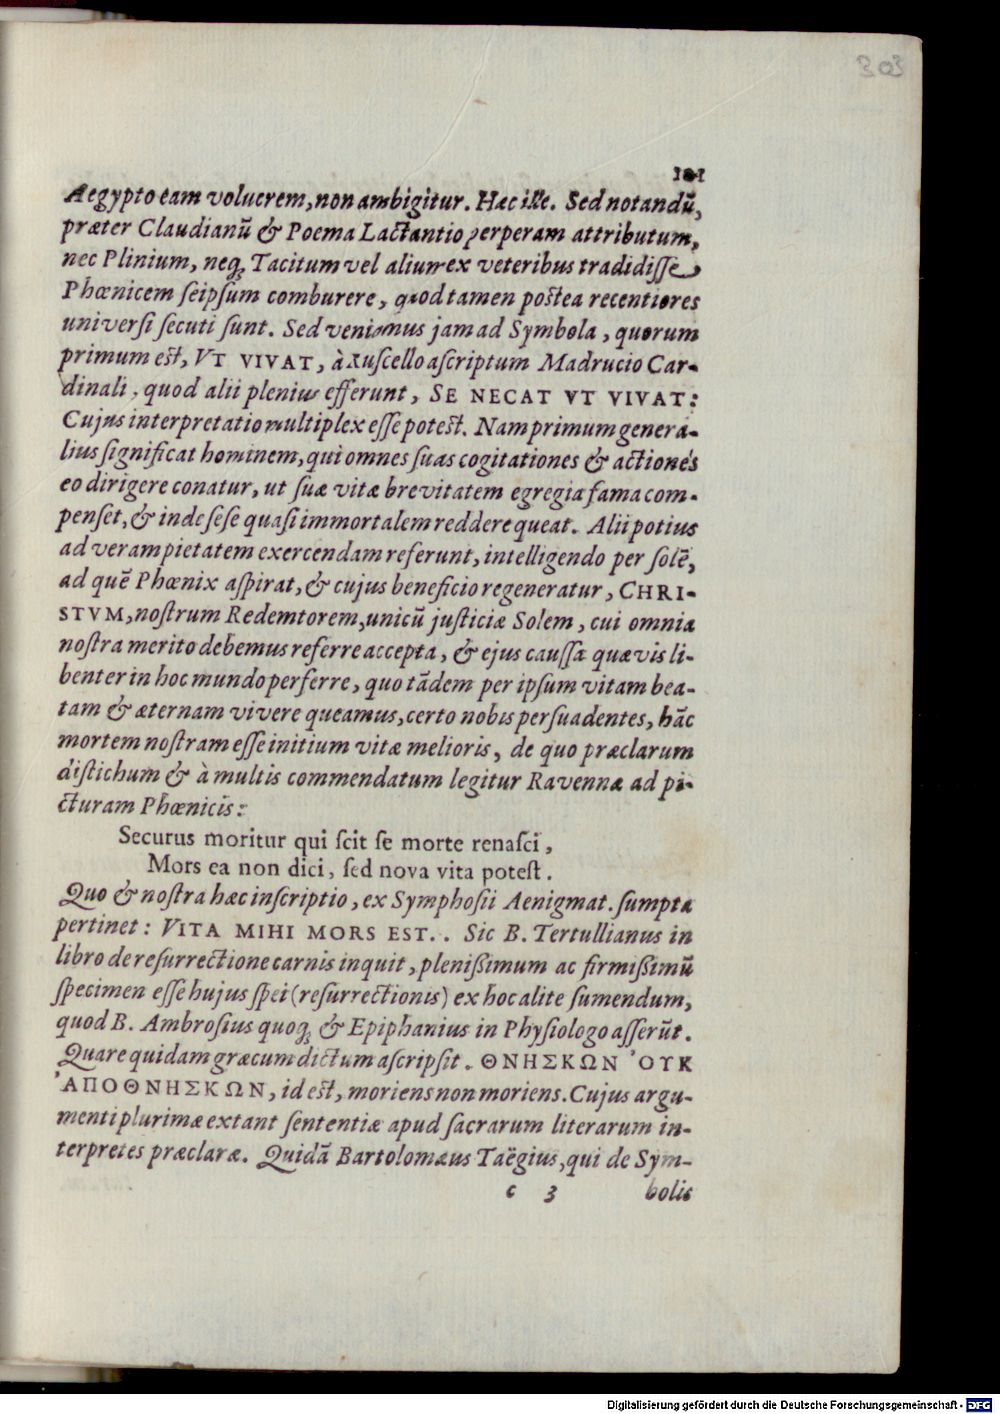 303
101
Aegypto eam volucrem, non ambigitur. Hæc ille. Sed notandū,
præter Claudianū & Poema Lactantio perperam attributum,
nec Plinium, neq; Tacitum vel alium ex veteribus tradidisse
Phœnicem seipsum comburere, quod tamen postea recentiores
universi secuti sunt. Sed veniamus jam ad Symbola, quorum
primum est, VT VIVAT, à Ruscello ascriptum Madrucio Car-
dinali, quod alii plenius efferunt, SE NECAT VT VIVAT:
Cujus interpretatio multiplex esse potest. Nam primum genera-
lius significat hominem, qui omnes suas cogitationes & actiones
eo dirigere conatur, ut suæ vitæ brevitatem egregia fama com-
penset, & inde sese quasi immortalem reddere queat. Alii potius
ad veram pietatem exercendam referunt, intelligendo per solē,
ad quē Phœnix aspirat, & cujus beneficio regeneratur, CHRI-
STVM, nostrum Redemtorem, unicū justiciæ Solem, cui omnia
nostra merito debemus referre accepta, & ejus caussa quævis li-
benter in hoc mundo perferre, quo tādem per ipsum vitam bea-
tam & æternam vivere queamus, certo nobis persuadentes, hāc
mortem nostram esse initium vitæ melioris, de quo præclarum
distichum & à multis commendatum legitur Ravennæ ad pi-
cturam Phœnicis:
Securus moritur qui scit se morte renasci,
Mors ea non dici, sed nova vita potest.
Quo & nostra hæc inscriptio, ex Symphosii Aenigmat. sumpta
pertinet: VITA MIHI MORS EST.. Sic B. Tertullianus in
libro de resurrectione carnis inquit, plenißimum ac firmißimū
specimen esse hujus spei (resurrectionis) ex hoc alite sumendum,
quod B. Ambrosius quoq; & Epiphanius in Physiologo asserūt.
Quare quidam græcum dictum ascripsit. ΘΝΗΣΚΩΝ ʼΟΥΚ
ʼΑΠΟΘΝΗΣΚΩΝ, id est, moriens non moriens. Cujus argu-
menti plurimæ extant sententiæ apud sacrarum literarum in-
terpretes præclaræ. Quidā Bartolomæus Taëgius, qui de Sym-
c 3 bolis
Digitalisierung gefördert durch die Deutsche Forschungsgemeinschaft - DFG